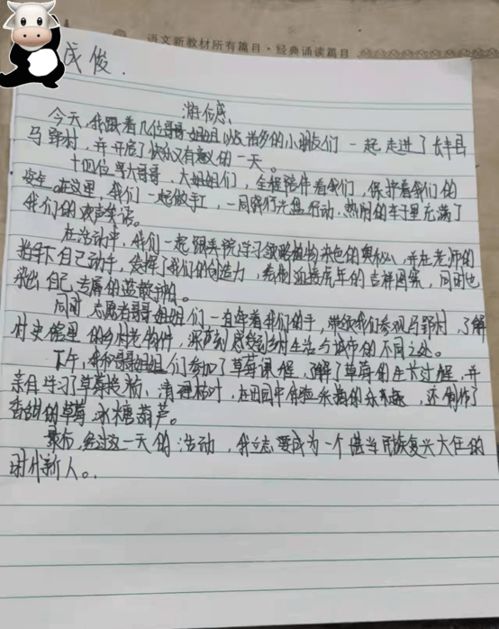 语文新教材所有篇目·经典诵读篇目
俊.
游后感
今天,我跟着几位哥哥姐姐以及的小朋友们一起走进了长丰县
马郢村,并开启了快乐又有意义的一天。
十四位哥大哥哥、大姐姐们,全程陪伴着我们,保护着我们的
安全.在这里,我们一起做手工,一同践行光盘行动,热闹的车子里充满了
我们的欢声笑语。
在活动中,我们一起跟吴院学习领略植物染色的奥秘,并在老师的
指导下自己动手,发挥了我们的创造力,看到迎接虎年的吉祥图案,同时也
染出自己
同时,志愿者哥哥姐姐们一直牵着我们的手,带领我们参观马郢村,了解
村史馆里的乡村老物件,深刻感受到乡村生活与城市的不同之处。
下午,我和哥哥姐姐们参加了草莓课程,了解了草莓的生长过程,并
亲自学习了草莓、清理枯叶,在田园中体验采摘的乐趣,还制作了
香甜的草莓冰糖葫芦。
最后,经过这一天的活动,我立志要成为一个堪当民族复兴大任的
时代新人。